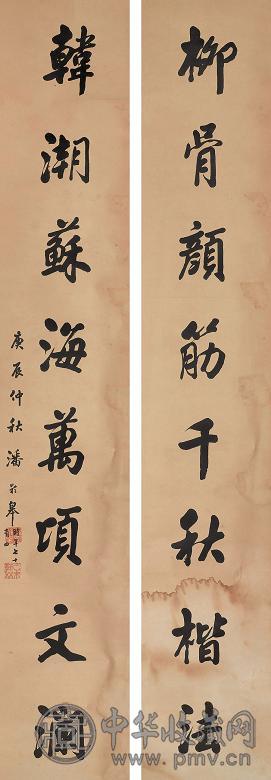 柳骨顏筋千秋楷法
韓潮蘇海萬頃文瀾
庚辰仲秋潘齡皋時年七十有四
中华收藏网
www.pmv.cn